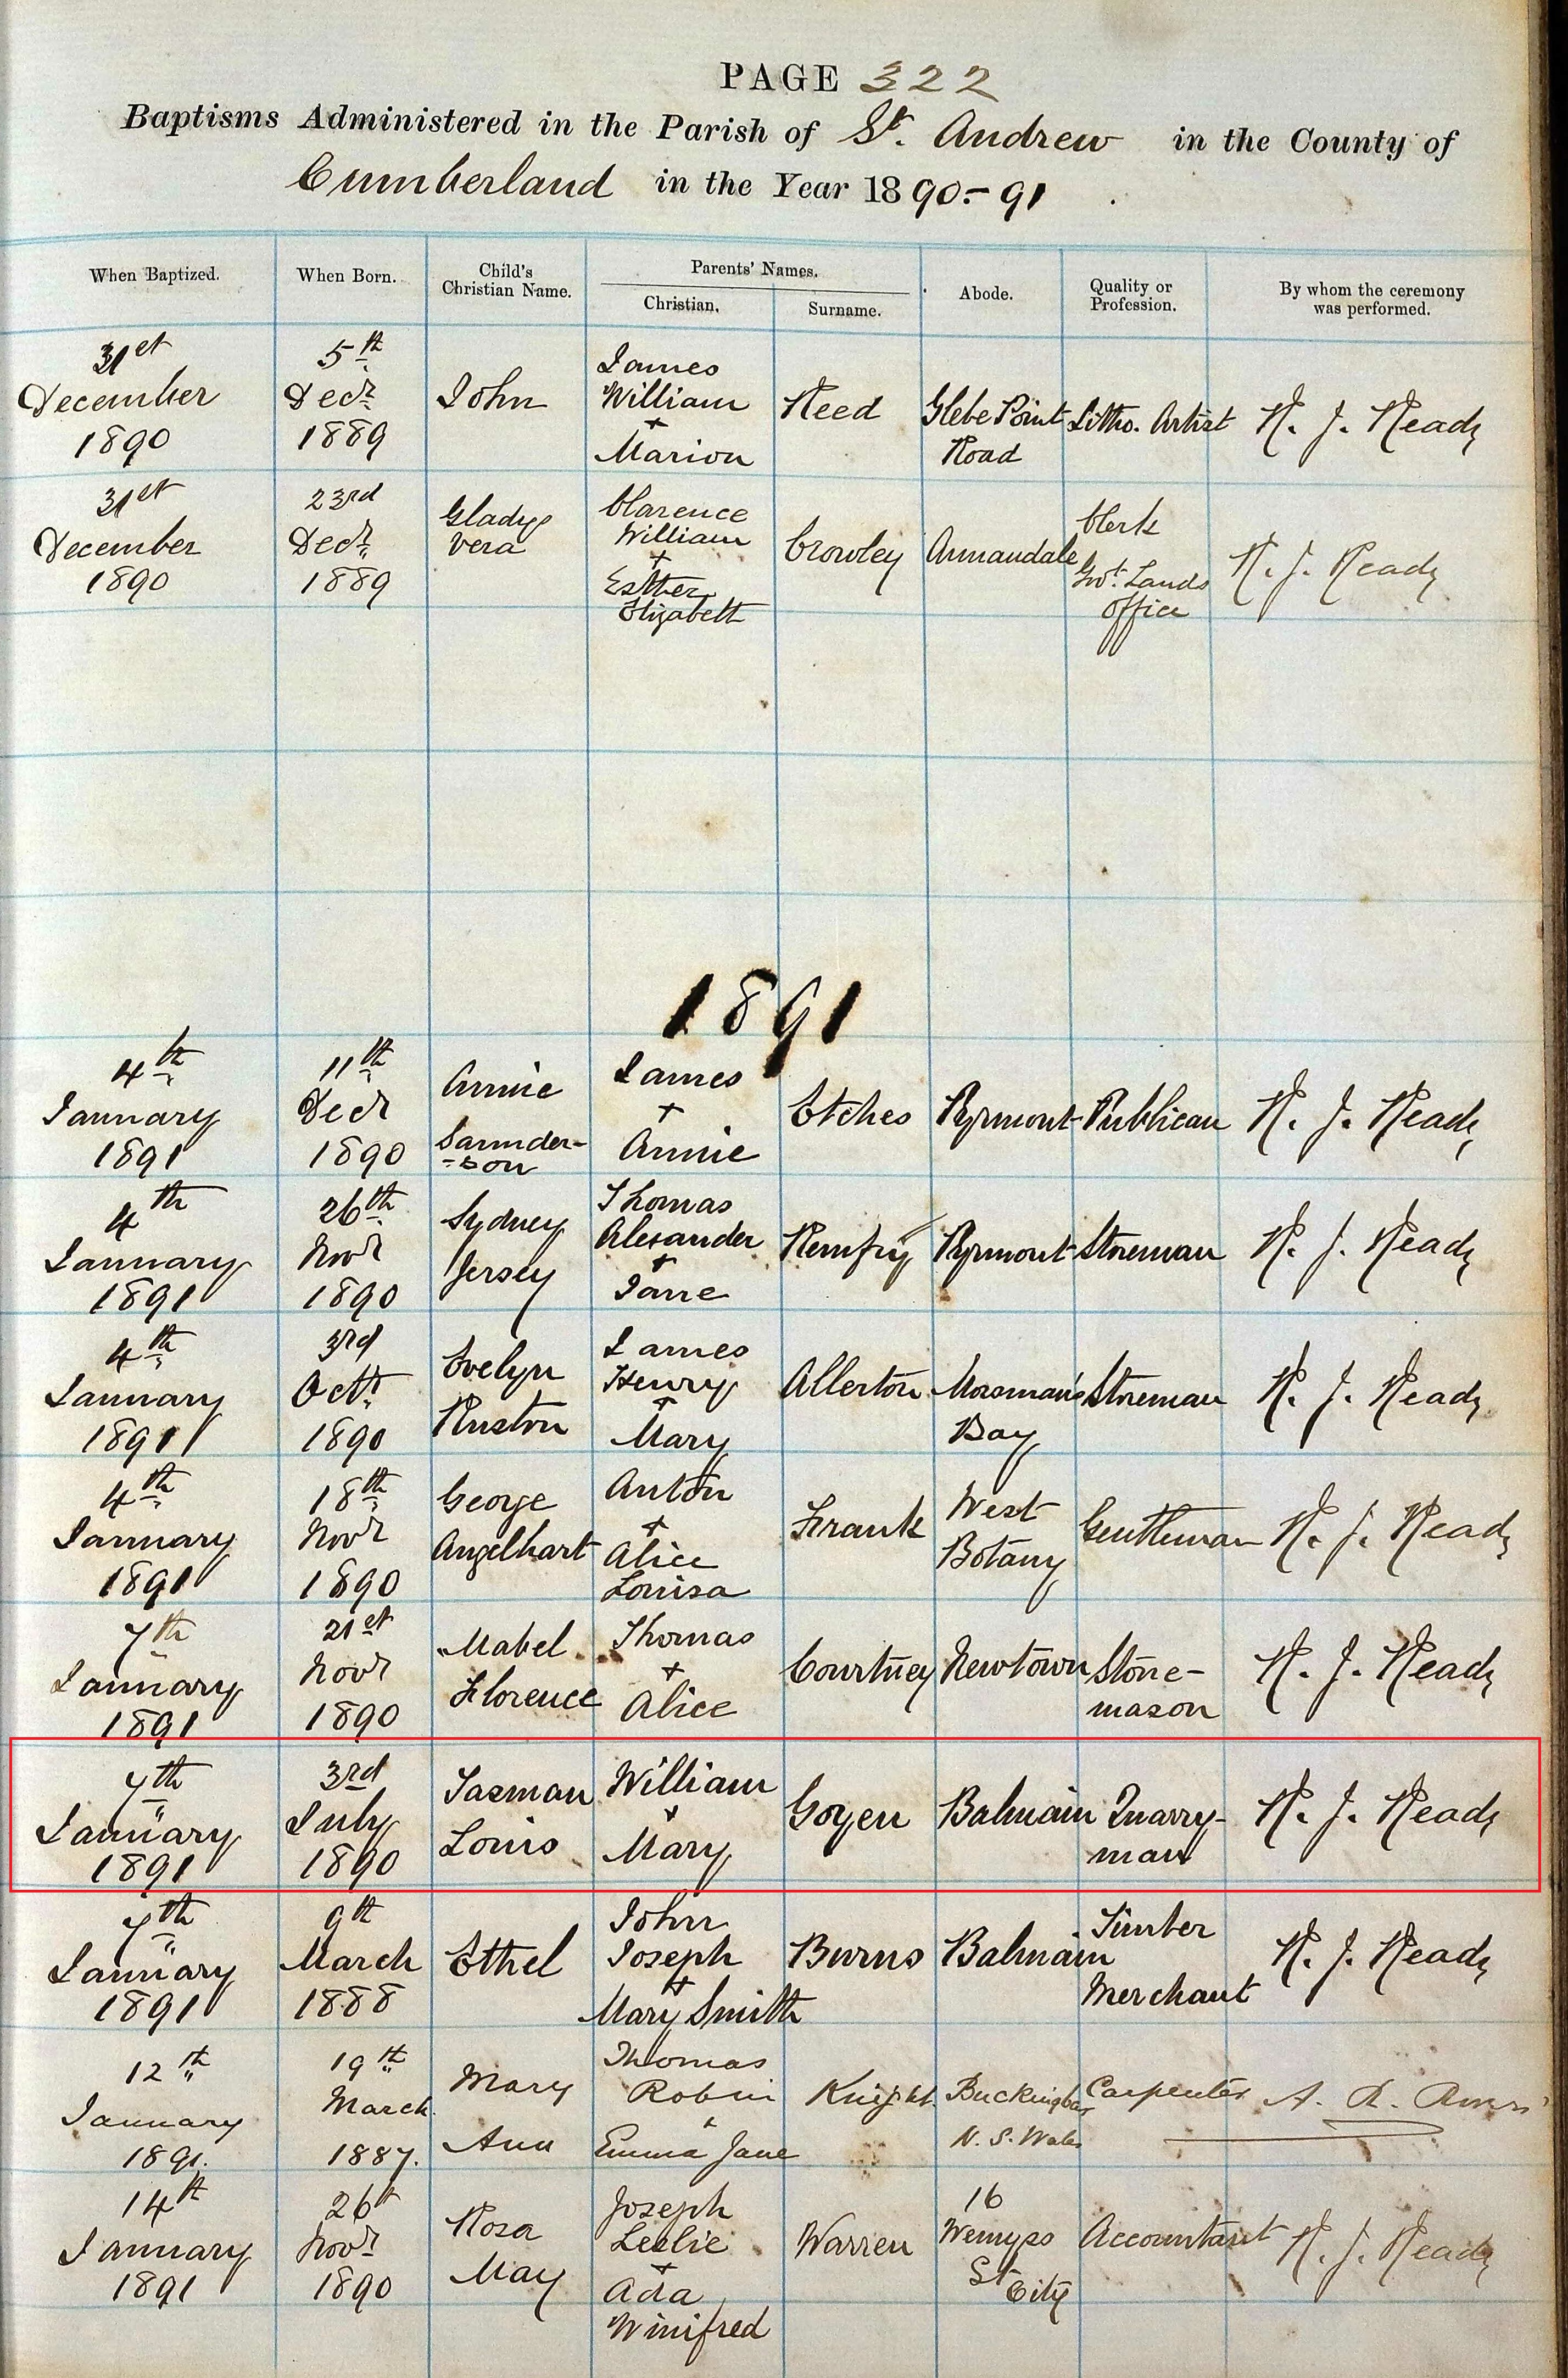 PAGE 322
Baptisms Administered in the Parish of St. Andrew in the County of
Cumberland in the Year 1890-91
When Baptized. When Born. Child's Christian Name. Parents' Names. Christian. Surname. Abode. Quality or Profession. By whom the ceremony was performed.
31st December 1890 5th Decr 1889 John James William + Marion Reed Glebe Point Road Litho. Artist R. J. Read
31st December 1890 23rd Decr 1889 Gladys Vera Clarence William + Esther Elizabeth Crowley Annandale Clerk Govt. Lands Office R. J. Read
1891
4th January 1891 11th Decr 1890 Annie Saunder-son James + Annie Etches Pyrmont Publican R. J. Read
4th January 1891 26th Novr 1890 Sydney Jersey Thomas Alexander + Jane Remfry Pyrmont Storeman R. J. Read
4th January 1891 3rd Octr 1890 Evelyn Ruston James Henry + Mary Allerton Mossman's Bay Storeman R. J. Read
4th January 1891 18th Novr 1890 George Angelhart Anton + Alice Louisa Frank West Botany Gentleman R. J. Read
7th January 1891 21st Novr 1890 Mabel Florence Thomas + Alice Courtney Newtown Stone-mason R. J. Read
7th January 1891 3rd July 1890 Tasman Louis William + Mary Goyen Balmain Quarry-man R. J. Read
7th January 1891 9th March 1888 Ethel John Joseph + Mary Smith Burns Balmain Timber Merchant R. J. Read
12th January 1891. 19th March 1887. Mary Ann Thomas Robin Emma Jane Knight N. S. Wales Carpenter A. R.
14th January 1891 26th Novr 1890 Rosa May Joseph Leslie + Ada Winifred Warren 16 Wemyss St City Accountant R. J. Read